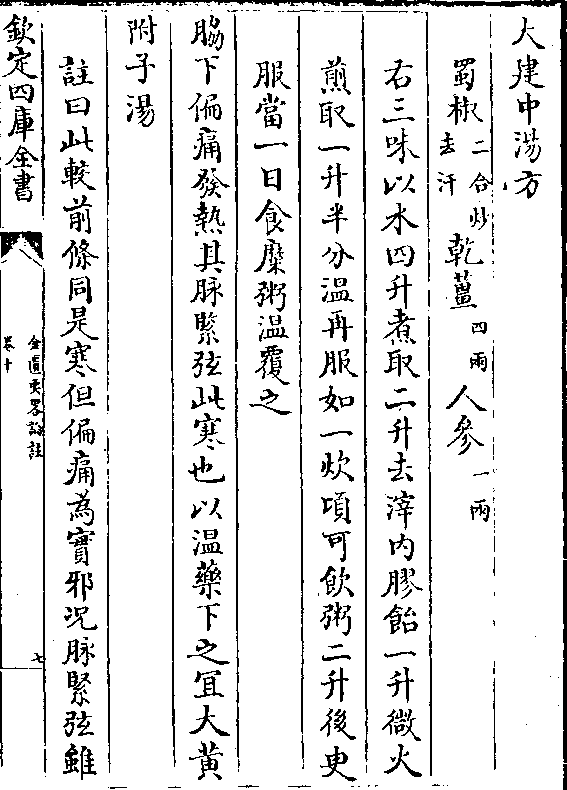 大建中湯方
蜀椒二合炒去汗 乾薑四兩 人參一兩
右三味以水四升煮取二升去滓内膠飴一升微火
煎取一升半分温再服如一炊頃可飲粥二升後更
服當一日食糜粥温覆之
脇下偏痛發熱其脉緊弦此寒也以温藥下之宜大黄
附子湯
註曰此較前條同是寒但偏痛為實邪况脉緊弦雖
欽定四庫全書
金匱要畧論註
卷十
七